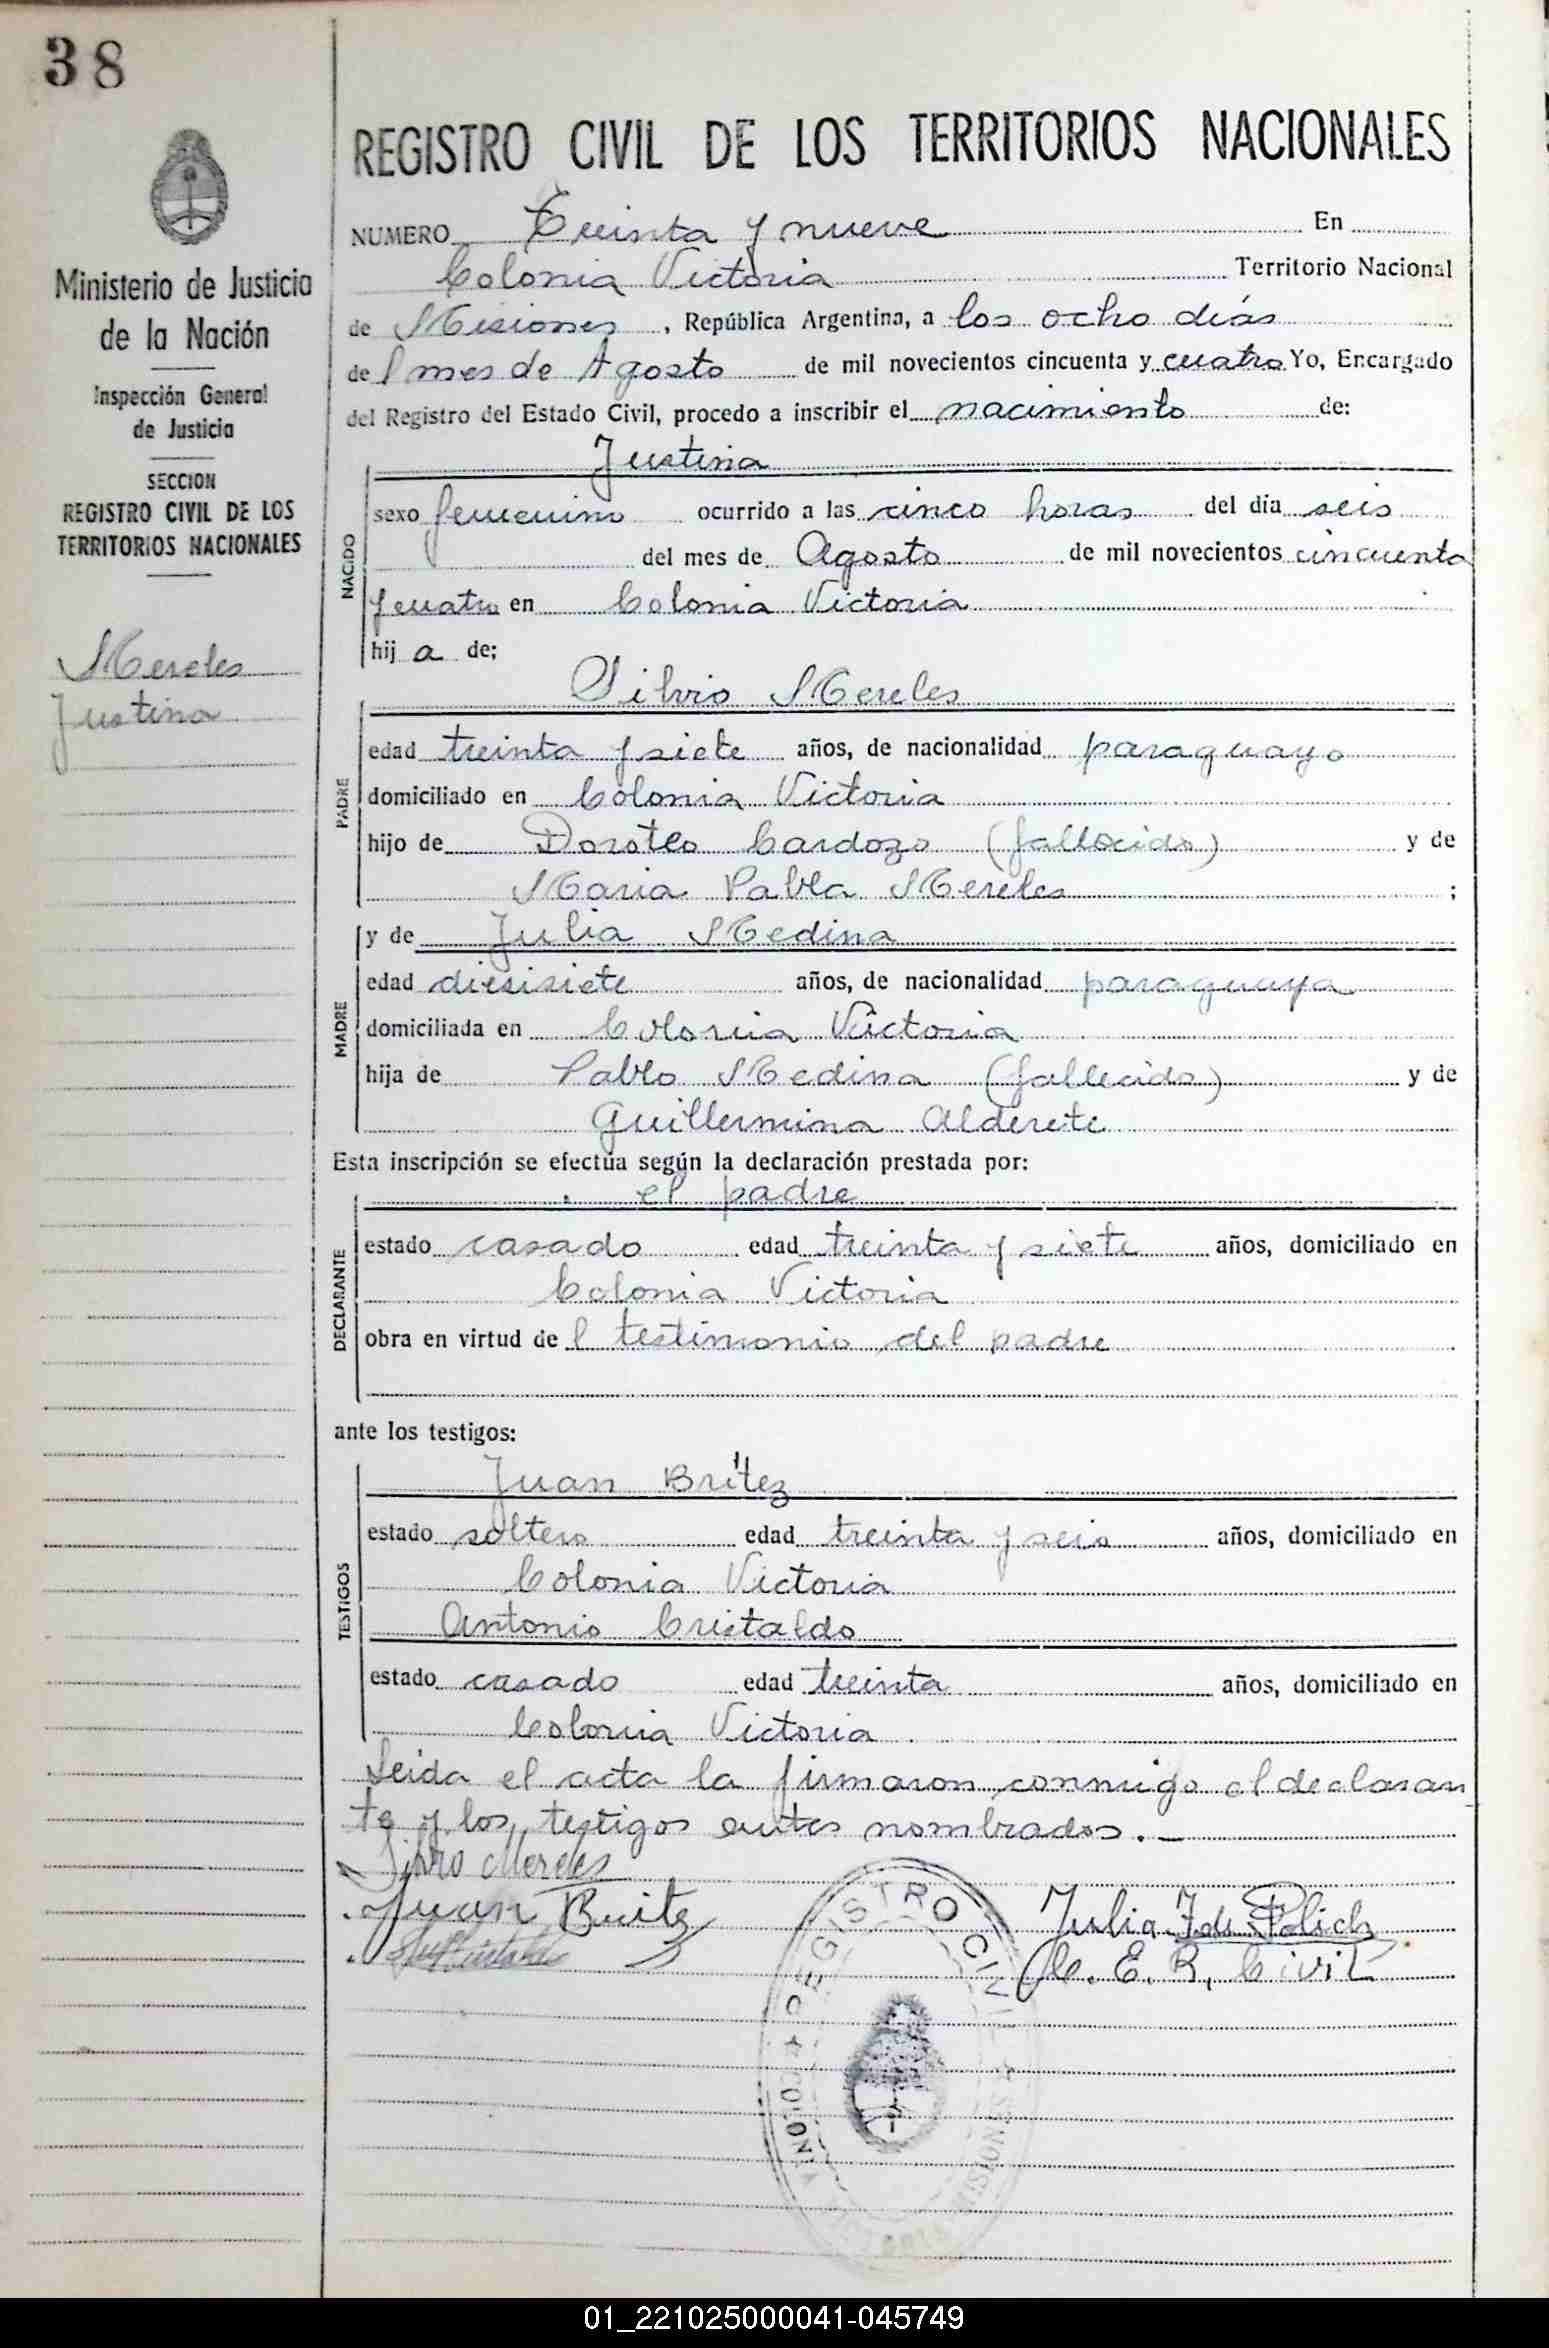 38
REGISTRO CIVIL DE LOS TERRITORIOS NACIONALES
Ministerio de Justicia
de la Nación
Inspección General
de Justicia
SECCION
REGISTRO CIVIL DE LOS
TERRITORIOS NACIONALES
Mereles
Justina
NUMERO Treinta y nueve En
Colonia Victoria Territorio Nacional
de Misiones, República Argentina, a los ocho días
del mes de Agosto de mil novecientos cincuenta y cuatro Yo, Encargado
del Registro del Estado Civil, procedo a inscribir el nacimiento de:
Justina
NACIDO
sexo femenino ocurrido a las cinco horas del día seis
del mes de Agosto de mil novecientos cincuenta
y cuatro en Colonia Victoria
hija de;
Silvio Mereles
PADRE
edad treinta y siete años, de nacionalidad paraguayo
domiciliado en Colonia Victoria
hijo de Doroteo Cardozo (fallecido) y de
Maria Pabla Mereles ;
y de Julia Medina
MADRE
edad diesisiete años, de nacionalidad paraguaya
domiciliada en Colonia Victoria
hija de Pablo Medina (fallecido) y de
Guillermina Alderete
Esta inscripción se efectúa según la declaración prestada por:
el padre
DECLARANTE
estado casado edad treinta y siete años, domiciliado en
Colonia Victoria
obra en virtud del testimonio del padre
ante los testigos:
Juan Britez
TESTIGOS
estado soltero edad treinta y seis años, domiciliado en
Colonia Victoria
Antonio Cristaldo
estado casado edad treinta años, domiciliado en
Colonia Victoria
Leida el acta la firmaron conmigo el declaran
te y los testigos antes nombrados.—
Silvio Mereles
Juan Britez
Julia F. de Polich
E. R. Civil
REGISTRO CIVIL
COLONIA VICTORIA MISIONES
01_221025000041-045749